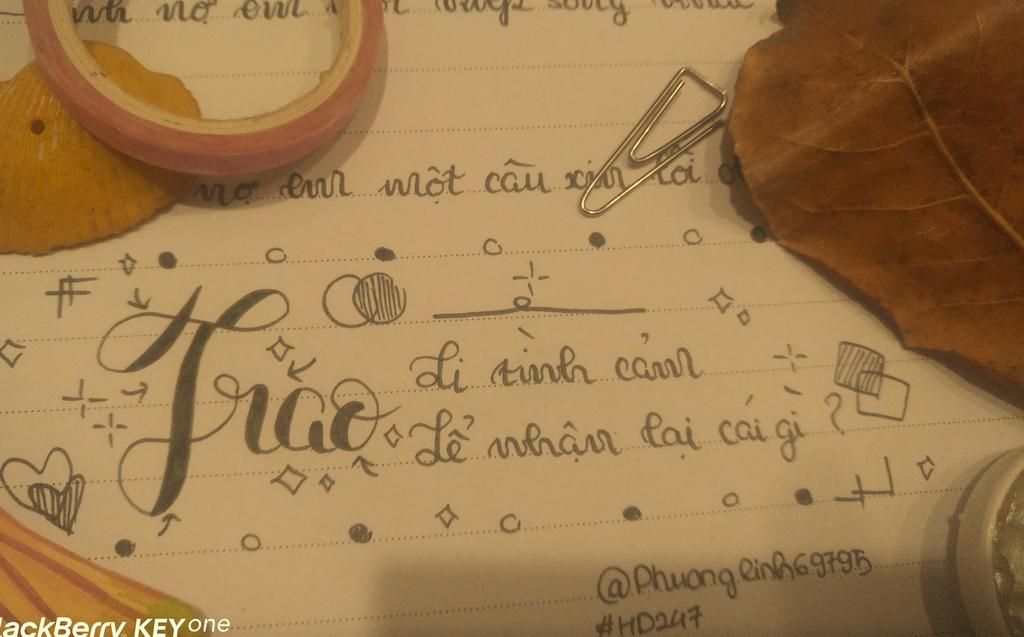 nợ em
nợ em một câu xin lỗi
Trao
đi tình cảm
để nhận lại cái gì ?
@Phuonglinh69795
#HD247
BlackBerry KEYone